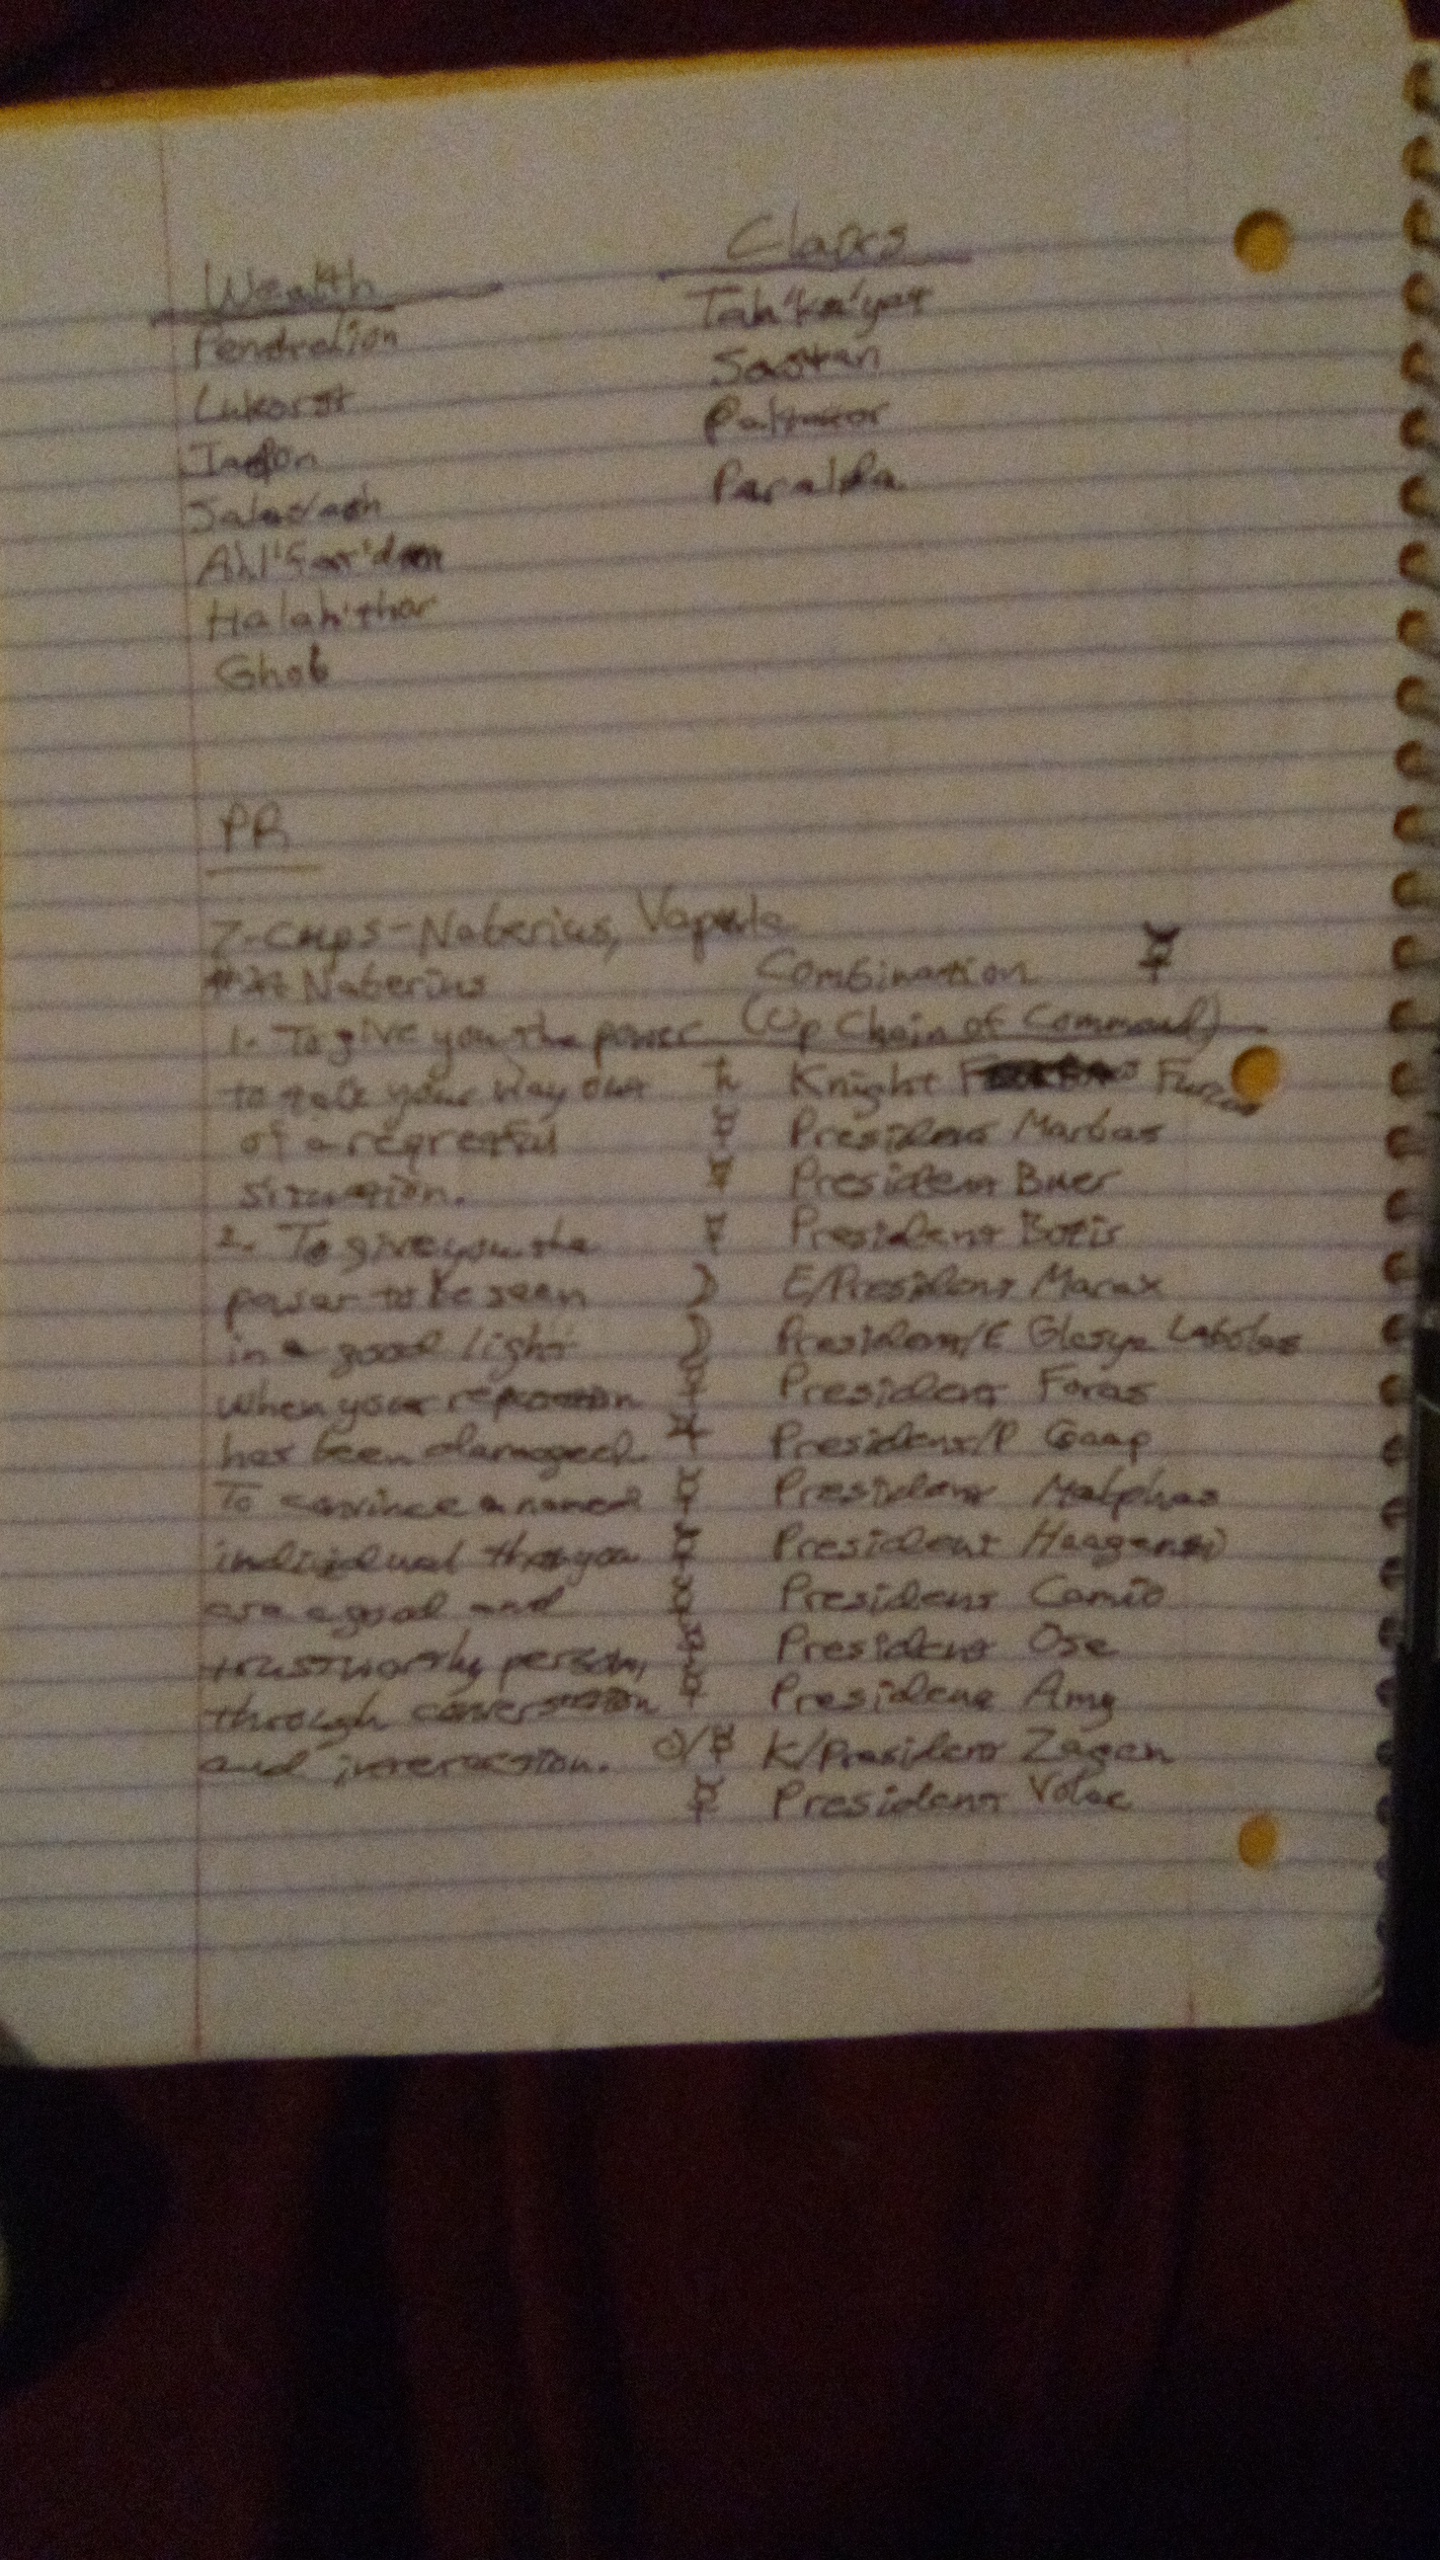 Wealth
Pendralion
Lukorst
Jadon
Ahl'
Halah'thor
Ghob
Tah'ka'yat
Paralda
PR
7-cups-Naberius, Vapula
Naberius
1. To give you the power
to talk your way out
of a regretful
situation.
2. To give you the
power to be seen
in a good light
when your
has been damaged.
To convince a named
individual that you
are a good and
trustworthy person,
through conversation
and interaction.
Combination ☿
(Up Chain of Command)
♄ Knight Furcas
☿ President Marbas
☿ President Buer
☿ President Botis
☽ E/President Marax
☽ President/E Glasya Labolas
☿ President Foras
♃ President/P Gaap
☿ President Malphas
☿ President Haagenti
☿ President Camio
☿ President Ose
☿ President Amy
☉/☿ K/President Zagan
☿ President Volac